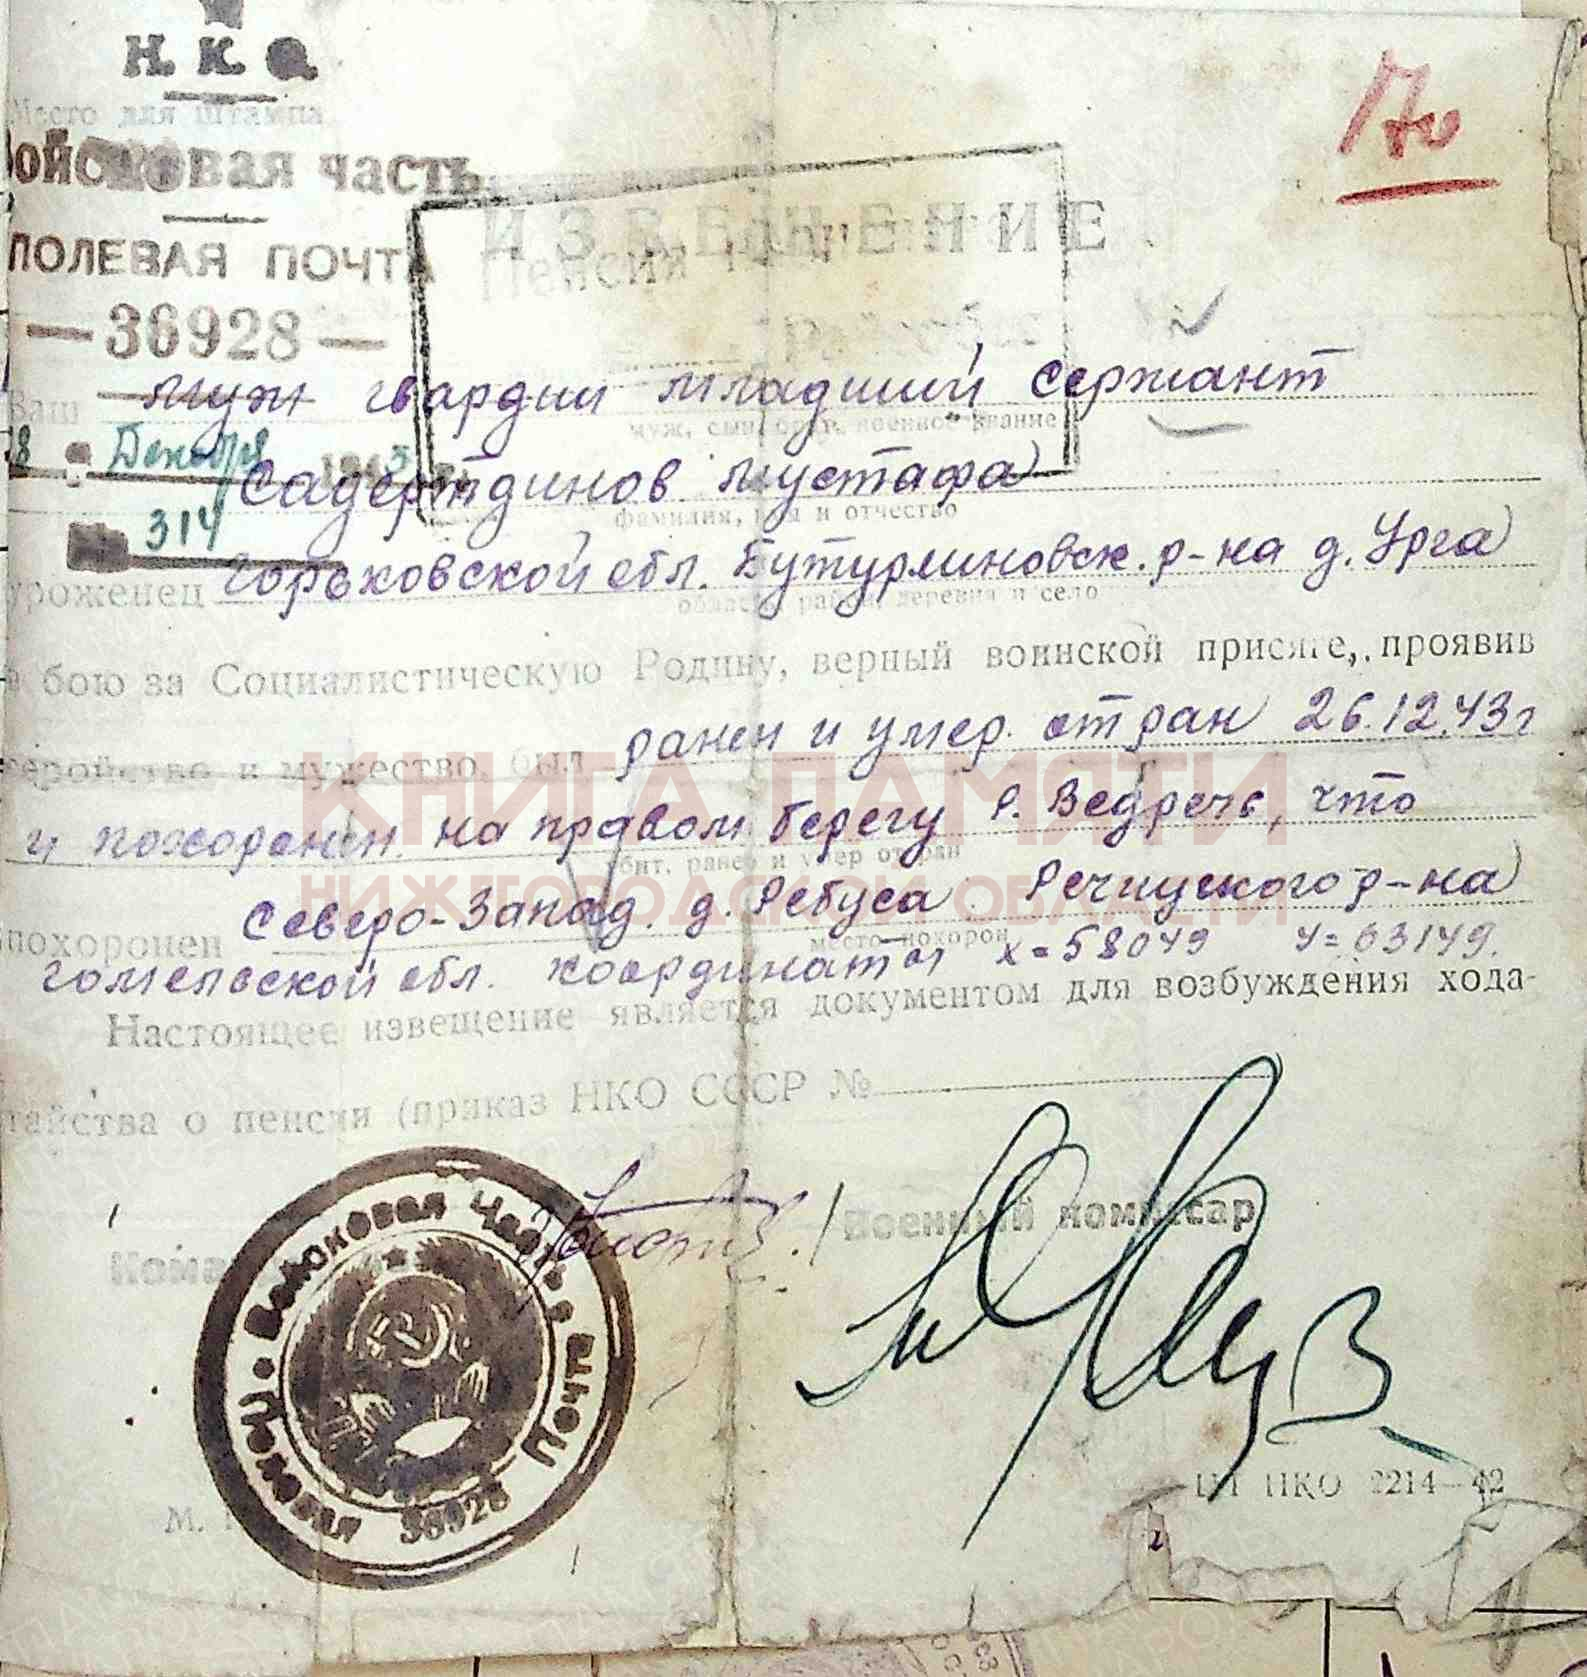 Н. К. О.
Место для штампа
Войсковая часть
ПОЛЕВАЯ ПОЧТА
— 36928 —
ИЗВЕЩЕНИЕ
Пенсия
Ваш муж гвардии младший сержант
муж, сын, брат, военное звание
Декабря 1943
Садертдинов Мустафа
фамилия, имя и отчество
314
уроженец Горьковской обл. Бутурлиновск. р-на д. Урга
область, район, деревня и село
в бою за Социалистическую Родину, верный воинской присяге, проявив
геройство и мужество, был ранен и умер от ран 26.12.43 г
КНИГА ПАМЯТИ
и похоронен на правом берегу р. Ведречь, что
убит, ранен и умер от ран
НИЖЕГОРОДСКОЙ ОБЛАСТИ
похоронен Северо-Запад. д. Ребуса Речицкого р-на
место похорон
Гомельской обл. координаты х=58049 у=63149.
Настоящее извещение является документом для возбуждения хода-
тайства о пенсии (приказ НКО СССР №
Военный комиссар
Кома
Войсковая Часть Полевая Почта 36928
М.
НКО 2214—42